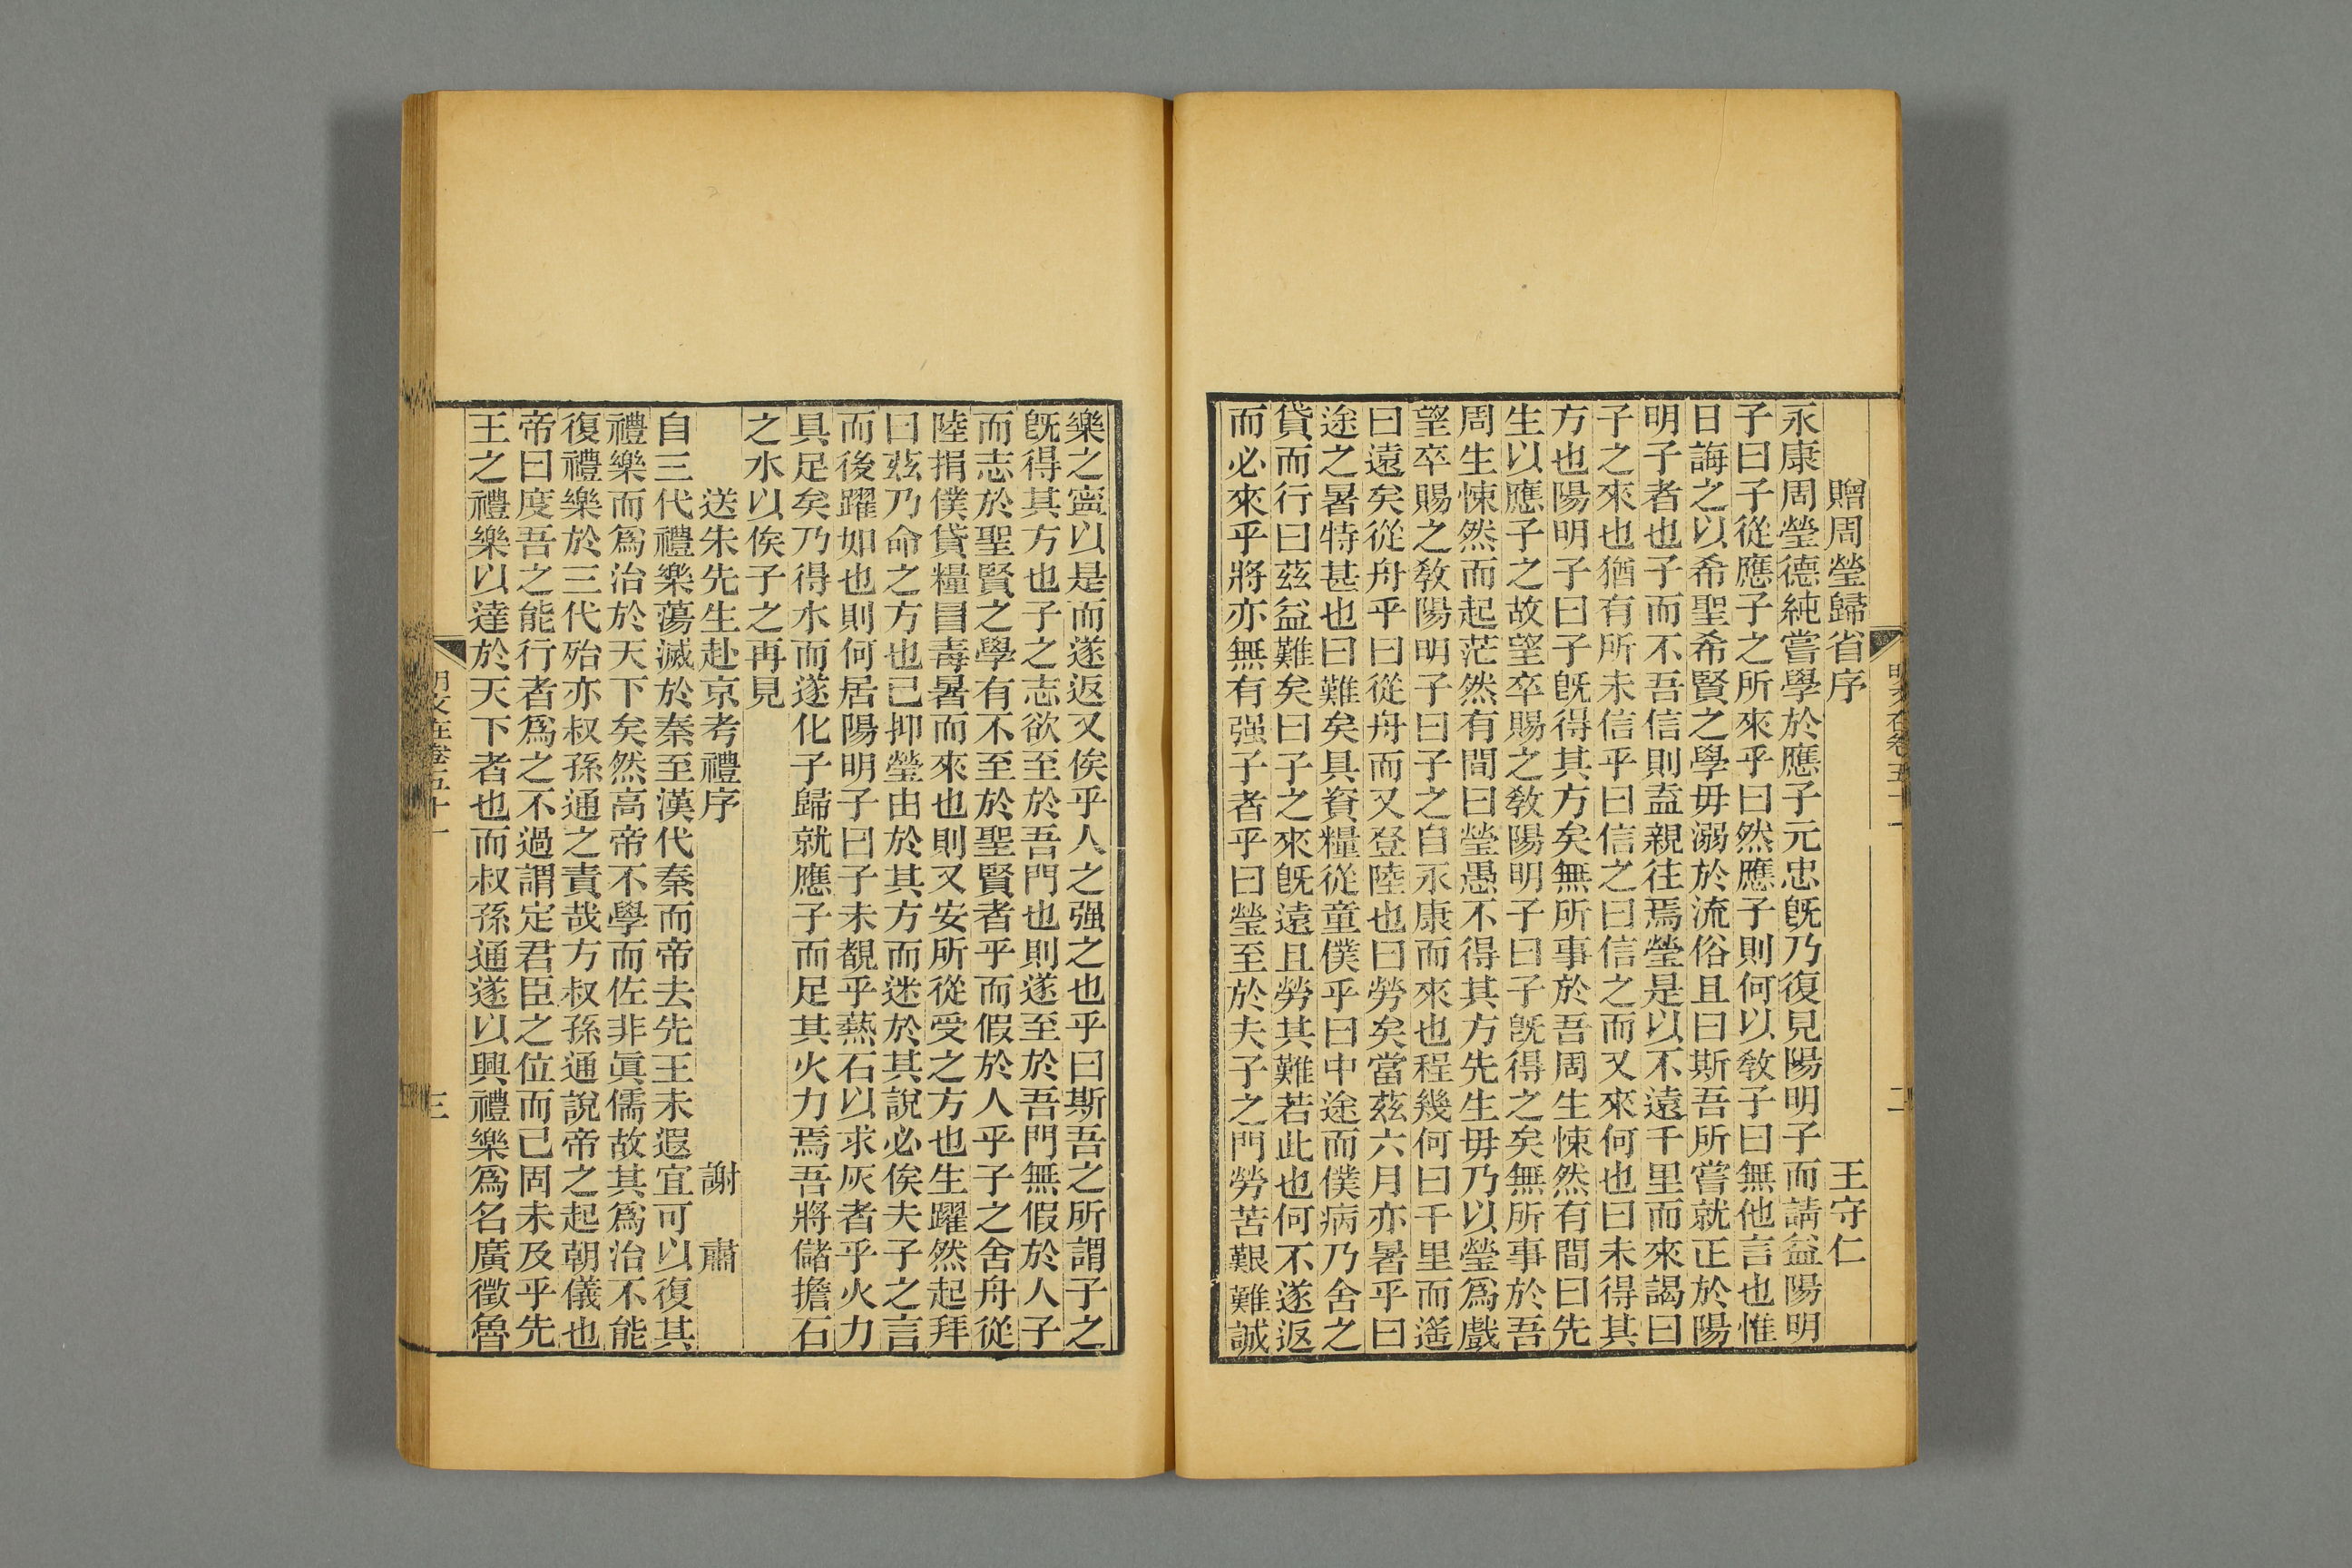 贈周瑩歸省序　王守仁
永康周瑩德純嘗學於應子元忠旣乃復見陽明子而請益陽明
子曰子從應子之所來乎曰然應子則何以敎子曰無他言也惟
日誨之以希聖希賢之學毋溺於流俗且曰斯吾所嘗就正於陽
明子者也子而不吾信則盍親往焉瑩是以不遠千里而來謁曰
子之來也猶有所未信乎曰信之曰信之而又來何也曰未得其
方也陽明子曰子旣得其方矣無所事於吾周生悚然有間曰先
生以應子之故望卒賜之敎陽明子曰子旣得之矣無所事於吾
周生悚然而起茫然有間曰瑩愚不得其方先生毋乃以瑩爲戲
望卒賜之敎陽明子曰子之自永康而來也程幾何曰千里而遥
曰遠矣從舟乎曰從舟而又登陸也曰勞矣當茲六月亦暑乎曰
途之暑特甚也曰難矣具資糧從童僕乎曰中途而僕病乃舍之
貸而行曰茲益難矣曰子之來旣遠且勞其難若此也何不遂返
而必來乎將亦無有强子者乎曰瑩至於夫子之門勞苦艱難誠
樂之寧以是而遂返又俟乎人之强之也乎曰斯吾之所謂子之
旣得其方也子之志欲至於吾門也則遂至於吾門無假於人子
而志於聖賢之學有不至於聖賢者乎而假於人乎子之舍舟從
陸捐僕貸糧冒毒暑而來也則又安所從受之方也生躍然起拜
曰茲乃命之方也已抑瑩由於其方而迷於其說必俟夫子之言
而後躍如也則何居陽明子曰子未覩乎爇石以求灰者乎火力
具足矣乃得水而遂化子歸就應子而足其火力焉吾將儲擔石
之水以俟子之再見
送朱先生赴京考禮序　謝肅
自三代禮樂蕩滅於秦至漢代秦而帝去先王未遐宜可以復其
禮樂而爲治於天下矣然高帝不學而佐非眞儒故其爲治不能
復禮樂於三代殆亦叔孫通之責哉方叔孫通說帝之起朝儀也
帝曰度吾之能行者爲之不過謂定君臣之位而已固未及乎先
王之禮樂以達於天下者也而叔孫通遂以興禮樂爲名廣徵魯
明文在卷五十一
三